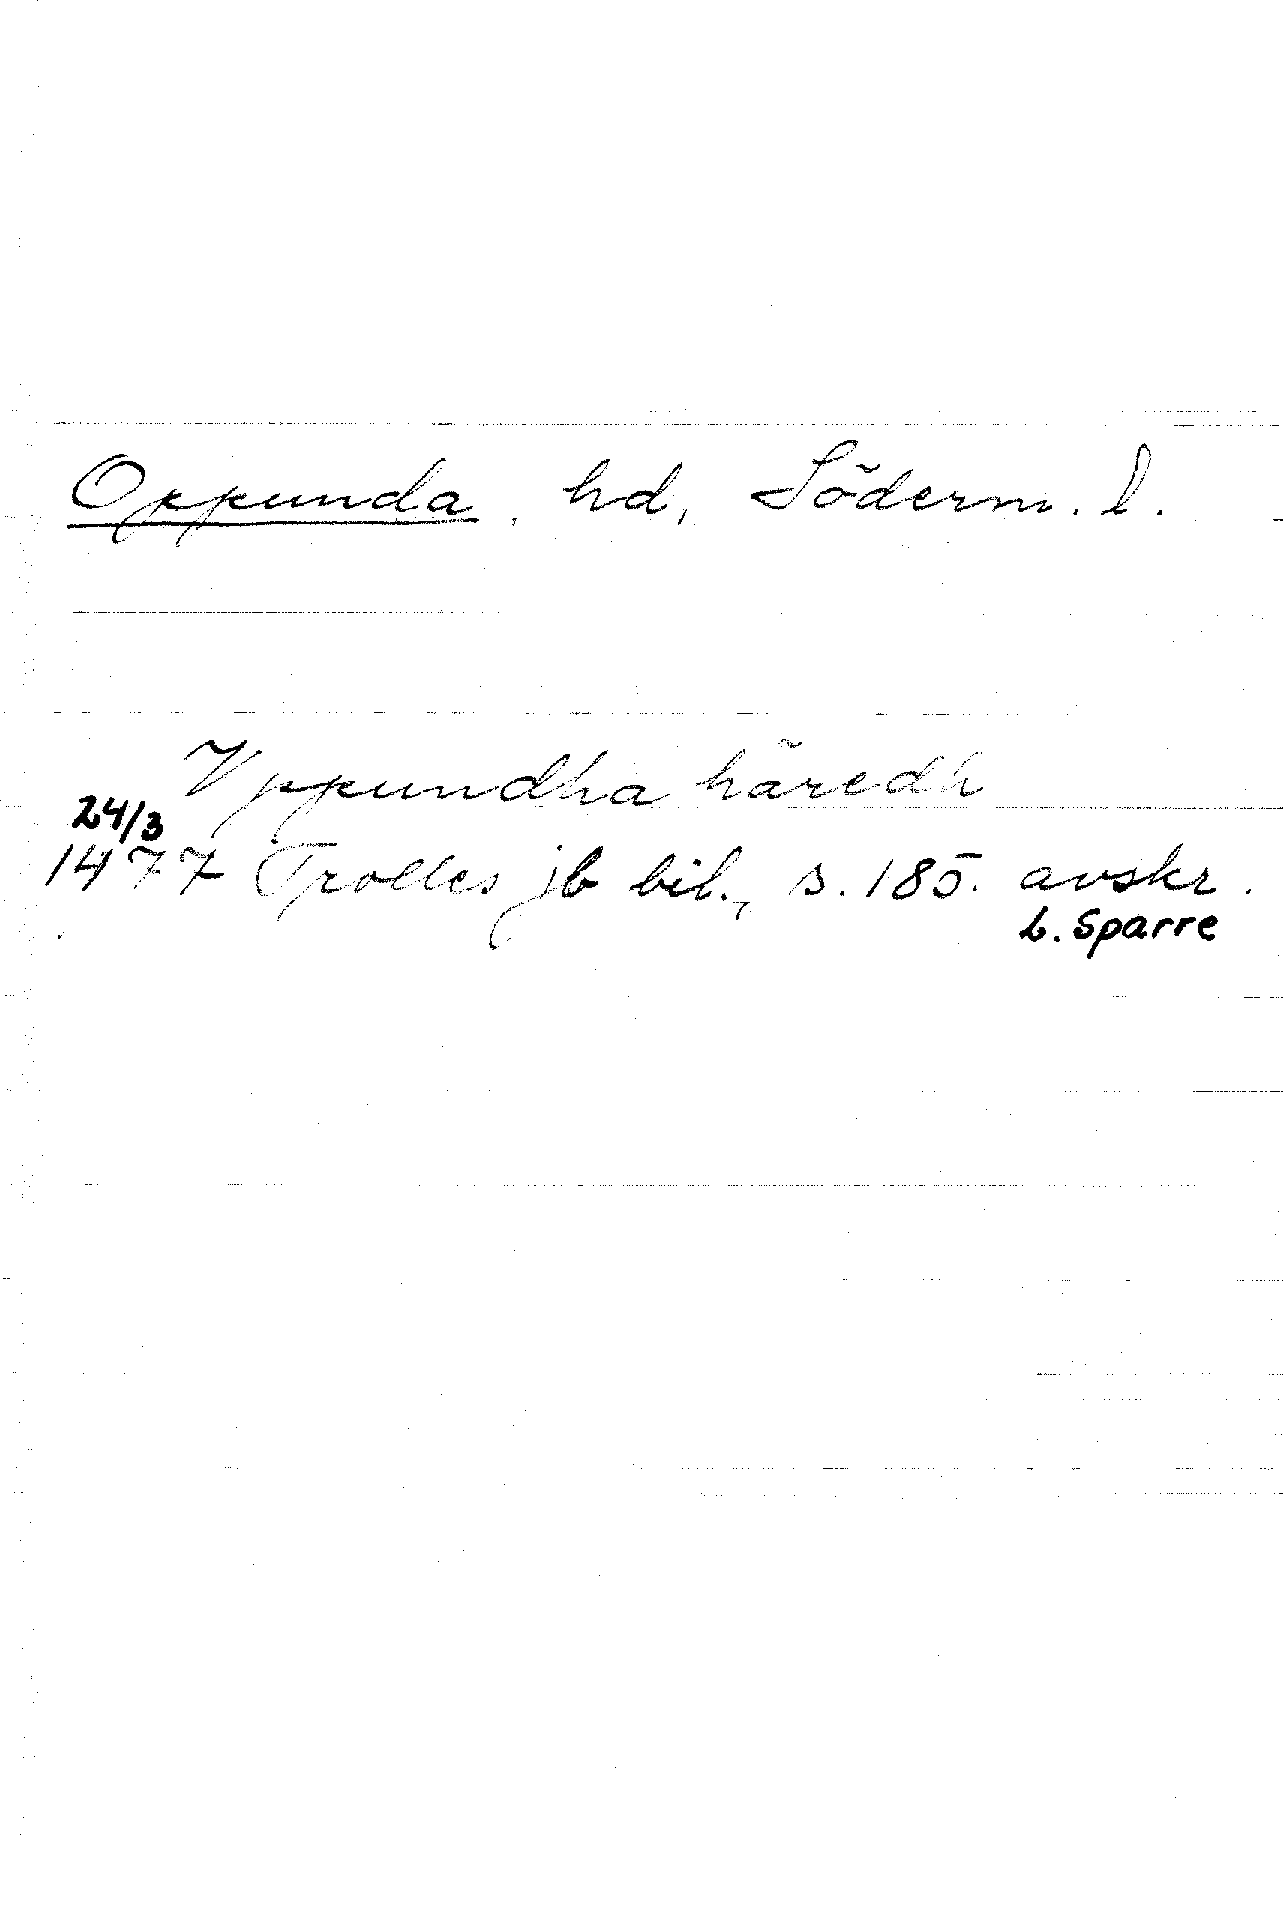 Oppunda, hd, Söderm. l.
Vppundha häredh
24/3
1477 Trolles jb bil., s. 185. avskr.
L. Sparre